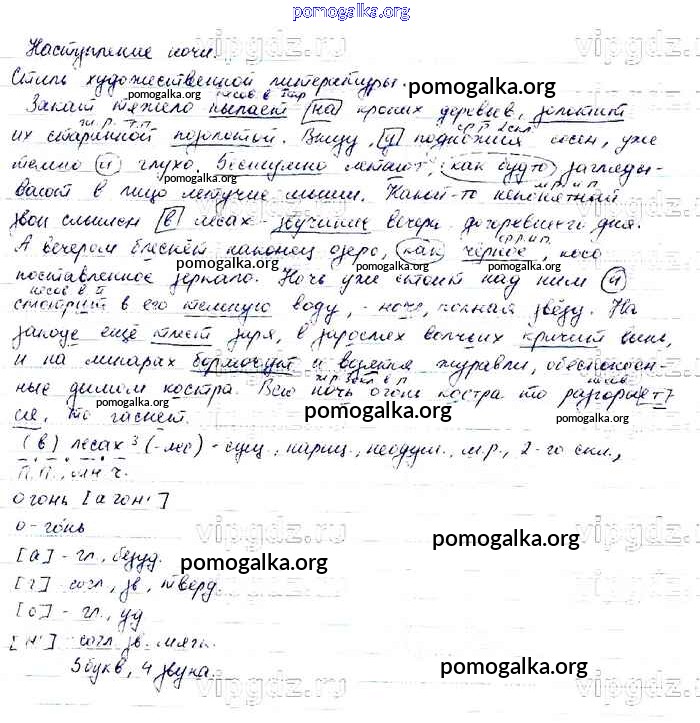 pomogalka.org
Наступление ночи.
Стиль художественной литературы.
Закат тяжело пылает на кронах деревьев, золотит
их старинной позолотой. Внизу, у подножия сосен, уже
темно и глухо. Бесшумно летают, как будто загляды-
вают в лицо летучие мыши. Какой-то непонятный
звон слышен в лесах - звучание вечера, догоревшего дня.
А вечером блеснёт наконец озеро, как чёрное, косо
поставленное зеркало. Ночь уже стоит над ним и
смотрит в его тёмную воду, - ночь, полная звёзд. На
западе ещё тлеет заря, в зарослях волчьих кричит выпь,
и на мшарах бормочут и возятся журавли, обеспокоен-
ные дымом костра. Всю ночь огонь костра то разгорает-
ся, то гаснет.
(В) лесах³ (-лес) - сущ., нариц., неодуш., м.р., 2-го скл.,
П.П., мн.ч.
Огонь [агон']
о-гонь
[а] - гл., безуд.
[г] - согл., зв., тверд.
[о] - гл., уд
[н'] - согл. зв. мягк.
5 букв, 4 звука.